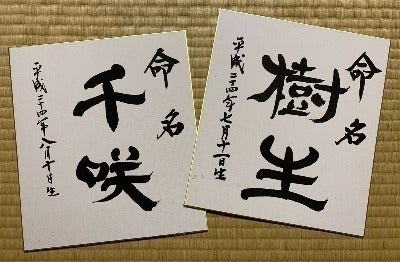 命名
千咲
平成二十四年八月十日生
命名
樹生
平成二十四年七月十一日生